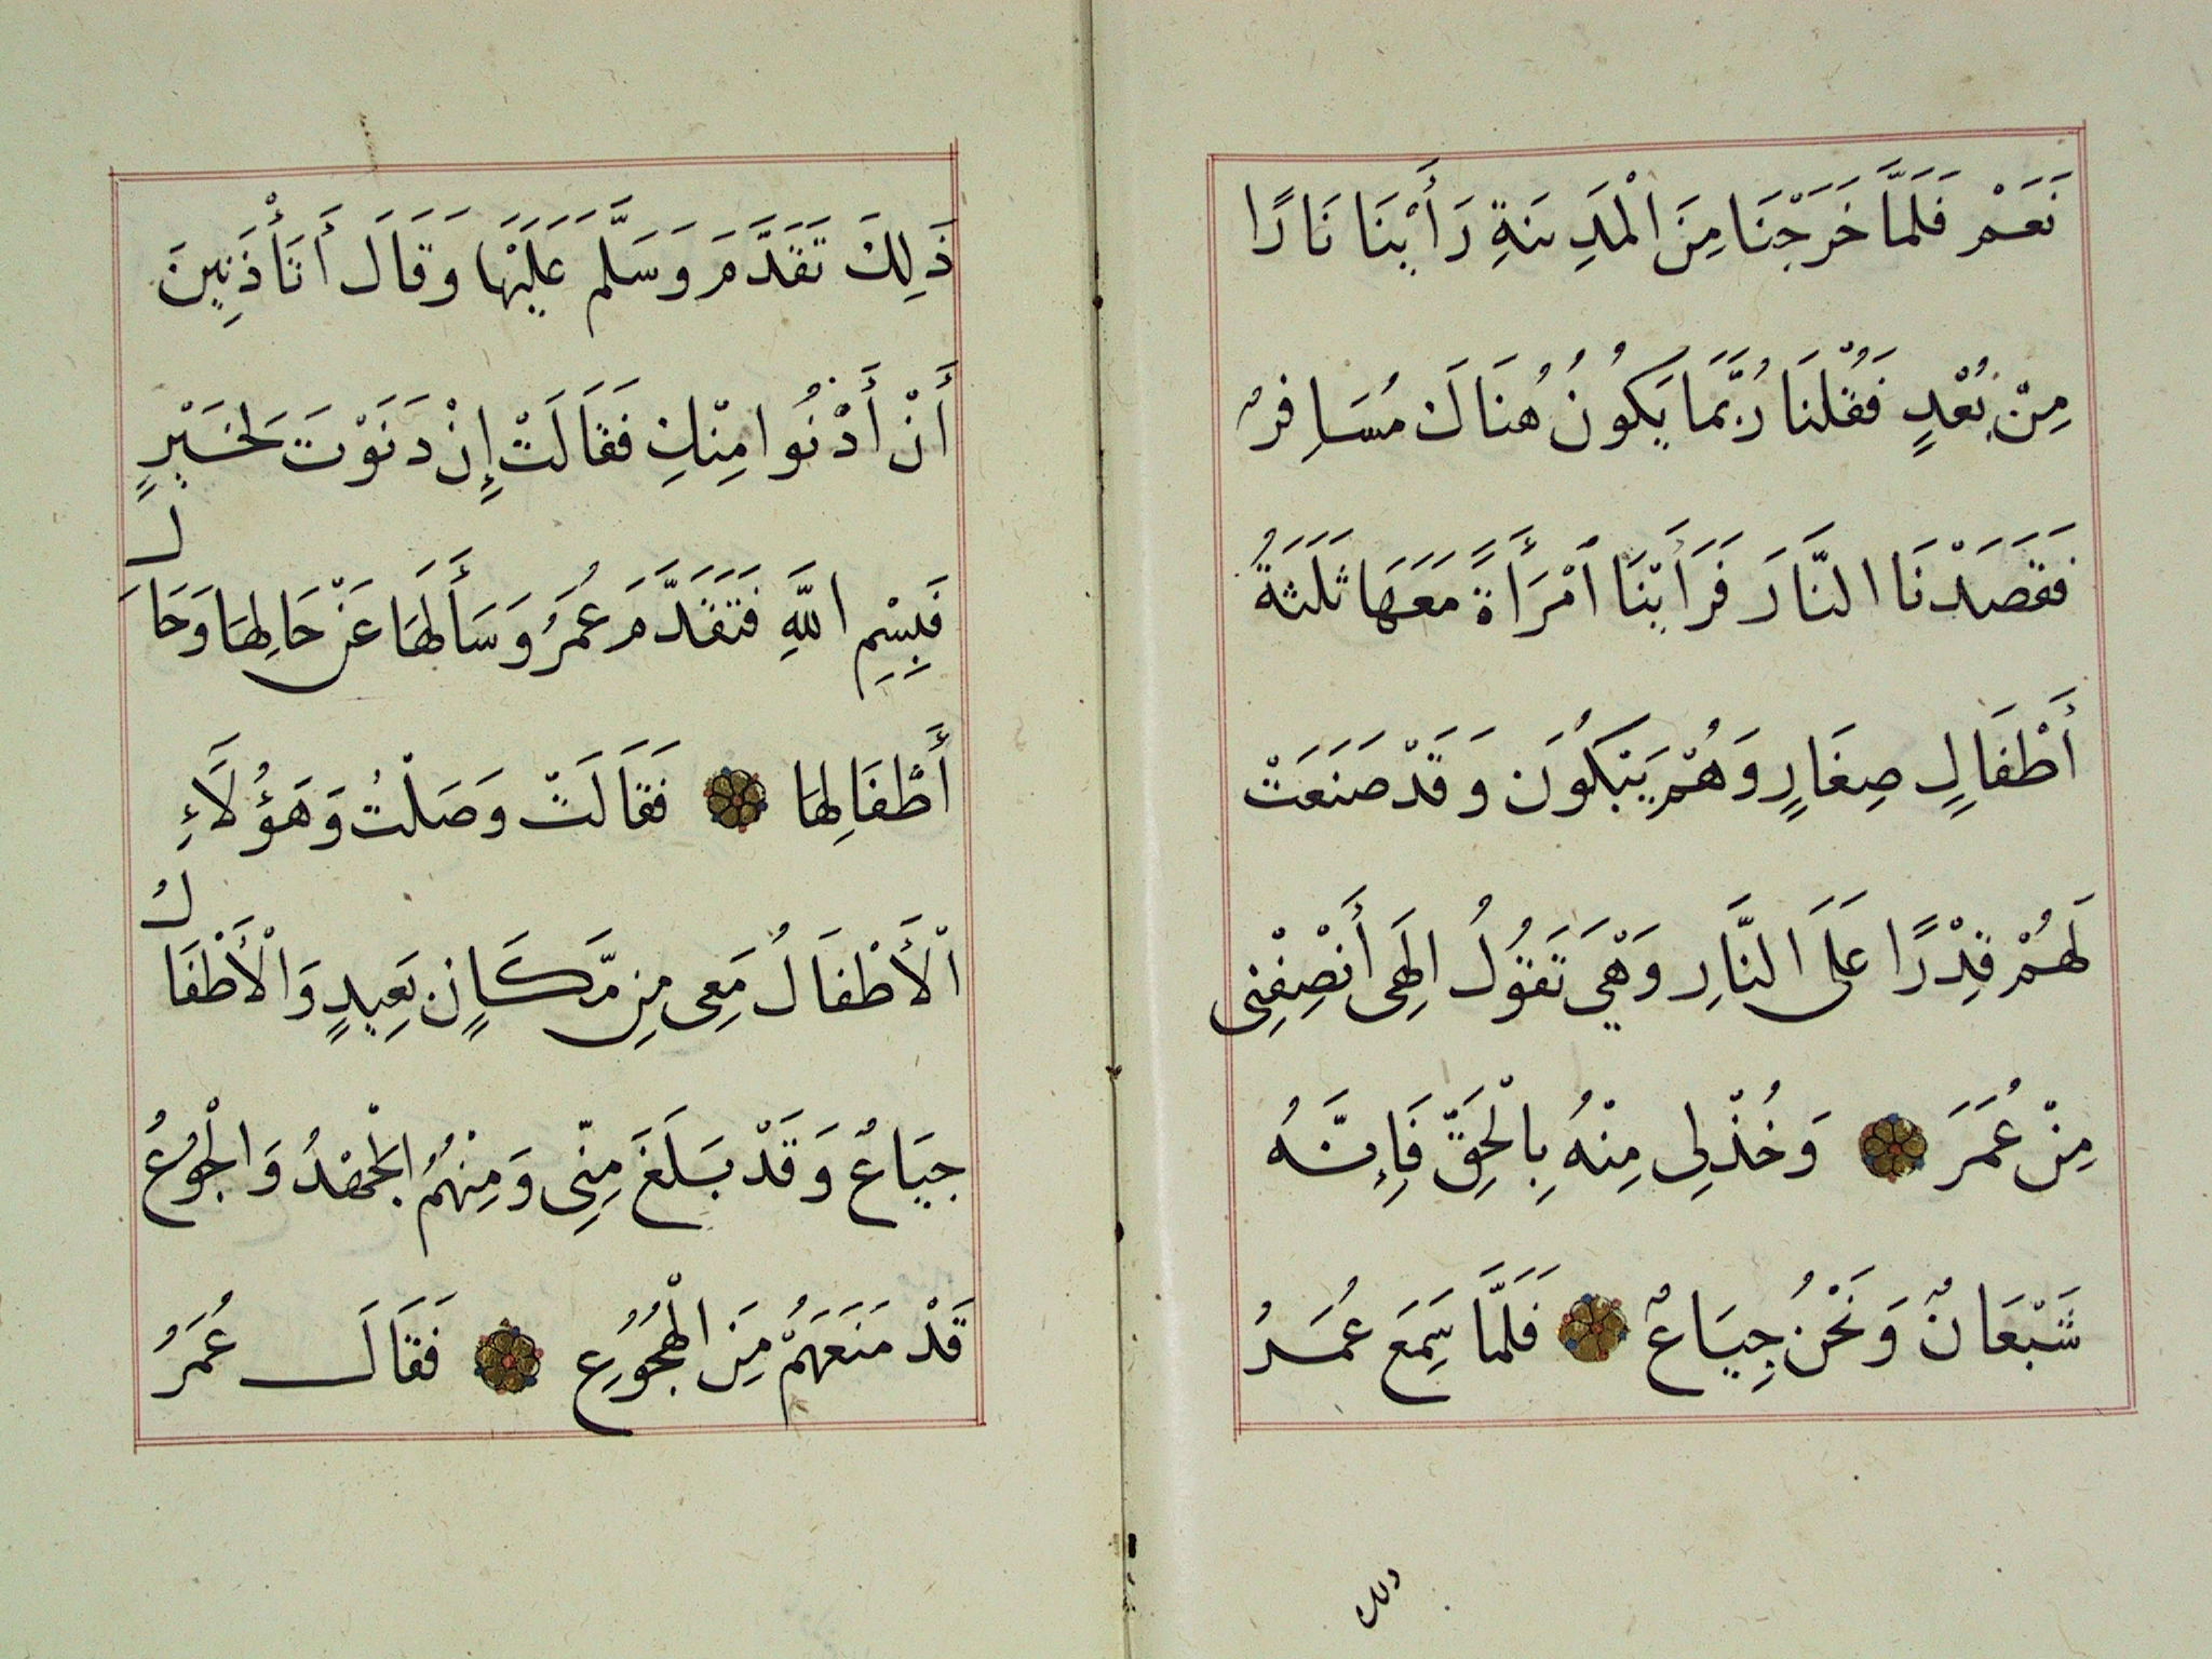 نَعَمْ فَلَمَّا خَرَجْنَا مِنَ الْمَدِينَةِ رَأَيْنَا نَارًا
مِنْ بُعْدٍ فَقُلْنَا رُبَّمَا يَكُونُ هُنَاكَ مُسَافِرٌ
فَقَصَدْنَا النَّارَ فَرَأَيْنَا امْرَأَةً مَعَهَا ثَلَثَةُ
أَطْفَالٍ صِغَارٍ وَهُمْ يَبْكُونَ وَقَدْ صَنَعَتْ
لَهُمْ قِدْرًا عَلَى النَّارِ وَهْيَ تَقُولُ إِلَهِي أَنْصِفْنِي
مِنْ عُمَرَ وَخُذْ لِي مِنْهُ بِالْحَقِّ فَإِنَّهُ
شَبْعَانٌ وَنَحْنُ جِيَاعٌ فَلَمَّا سَمِعَ عُمَرُ
ذلك
ذَلِكَ تَقَدَّمَ وَسَلَّمَ عَلَيْهَا وَقَالَ أَتَأْذَنِينَ
أَنْ أَدْنُوا مِنْكِ فَقَالَتْ إِنْ دَنَوْتَ لِخَيْرٍ
فَبِسْمِ اللَّهِ فَتَقَدَّمَ عُمَرُ وَسَأَلَهَا عَنْ حَالِهَا وَحَالِ
أَطْفَالِهَا فَقَالَتْ وَصَلْتُ وَهَؤُلَاءِ
الْأَطْفَالُ مَعِي مِنْ مَّكَانٍ بَعِيدٍ وَالْأَطْفَالُ
جِيَاعٌ وَقَدْ بَلَغَ مِنِّي وَمِنْهُمُ الْجَهْدُ وَالْجُوعُ
قَدْ مَنَعَهُمْ مِنَ الْهُجُوعِ فَقَالَ عُمَرُ